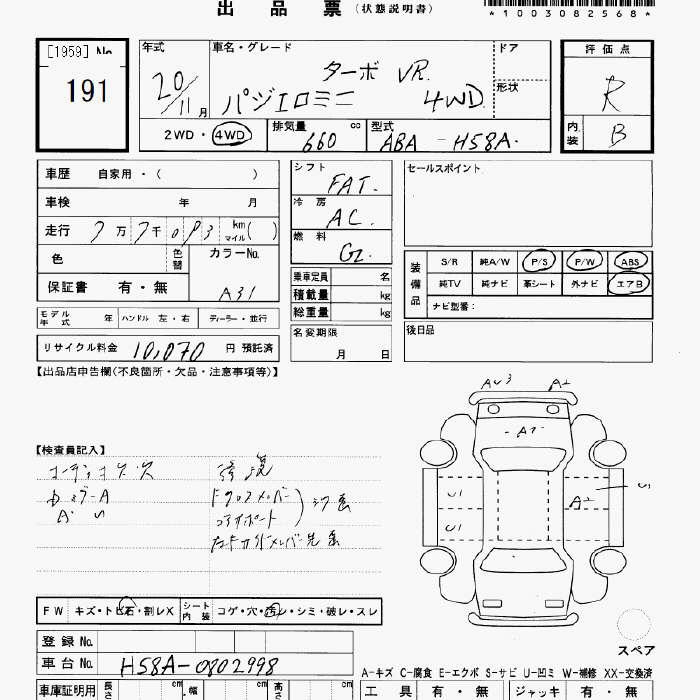 出 品 票 (状態説明書)
*1003082568*
[1959] No
191
年式 車名・グレード ドア
20/11 月 ターボ VR
パジェロミニ 4WD 形状
2WD・4WD 排気量 660 cc 型式 ABA-H58A
評価点
R
内装 B
車歴 自家用・( )
車検 年 月
走行 7万7千093 km マイル( )
色 色替 カラーNo. A31
保証書 有・無
モデル年式 年 ハンドル 左・右 ディーラー・並行
リサイクル料金 10,070 円 預託済
シフト FAT
冷房 AC
燃料 G
乗車定員 名
積載量 kg
総重量 kg
名変期限
月 日
セールスポイント
装備品 S/R 純A/W P/S P/W ABS
純TV 純ナビ 革シート 外ナビ エアB
ナビ型番:
後日品
【出品店申告欄(不良箇所・欠品・注意事項等)】
【検査員記入】
A2
A1
U1
U1
A2
FW キズ・トビ石・割レX シート内装 コゲ・穴・汚レ・シミ・破レ・スレ
登録 No.
車台 No. H58A-0802998
スペア
A-キズ C-腐食 E-エクボ S-サビ U-凹ミ W-補修 XX-交換済
車庫証明用 長さ cm 幅 cm 高さ cm 工具 有・無 ジャッキ 有・無